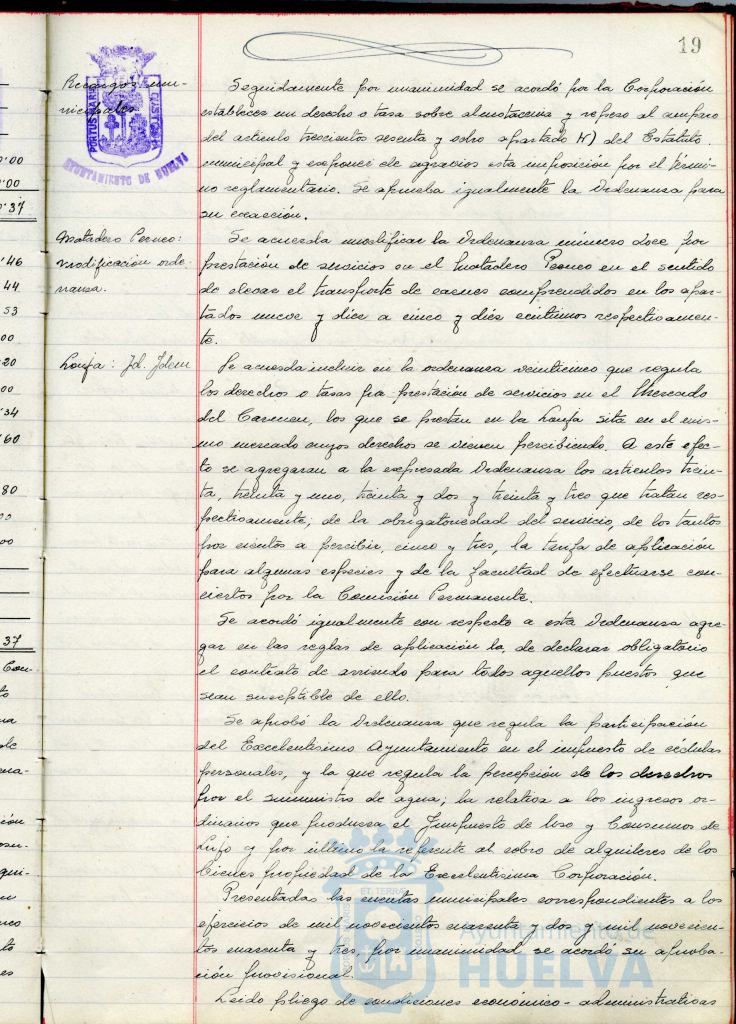 19
Recargos mu-
nicipales
PORTUS MARIS ET TERRAE CUSTODIA
AYUNTAMIENTO DE HUELVA
Seguidamente por unanimidad se acordó por la Corporación
establecer un derecho o tasa sobre almotacenia y repeso al amparo
del articulo trescientos sesenta y ocho apartado H) del Estatuto
municipal y exponer de agravios esta imposición por el térmi-
no reglamentario. Se aprueba igualmente la Ordenanza para
su exacción.
Matadero Porcuo:
modificación orde-
nanza.
Se acuerda modificar la Ordenanza número doce por
prestación de servicios en el Matadero Porcuo en el sentido
de elevar el transporte de carnes comprendidos en los apar-
tados nueve y diez a cinco y diez centimos respectivamen-
te.
Lonja: Id. Idem
Se acuerda incluir en la ordenanza veinticinco que regula
los derechos o tasas pra prestación de servicios en el Mercado
del Carmen, los que se prestan en la Lonja sita en el mis-
mo mercado cuyos derechos se vienen percibiendo. A este efec-
to se agregaran a la expresada Ordenanza los articulos trein-
ta, treinta y uno, treinta y dos y treinta y tres que tratan res-
pectivamente; de la obligatoriedad del servicio, de los tantos
por cientos a percibir, cinco y tres, la tarifa de aplicación
para algunas especies y de la facultad de efectuarse con-
ciertos por la Comisión Permanente.
Se acordó igualmente con respecto a esta Ordenanza agre-
gar en las reglas de aplicación la, de declarar obligatorio
el contrato de arriendo para todos aquellos puestos que
sean suseptible de ello.
Se aprobó la Ordenanza que regula la participación
del Excelentisimo Ayuntamiento en el impuesto de cédulas
personales, y la que regula la percepción de los derechos
por el suministro de agua; la relativa a los ingresos or-
dinarios que produzca el Impuesto de Uso y Consumos de
Lujo y por último la referente al cobro de alquileres de los
bienes propiedad de la Excelentisima Corporación.
Presentadas las cuentas municipales correspondientes a los
ejercicios de mil novecientos cuarenta y dos y mil novecien-
tos cuarenta y tres, por unanimidad se acordó su aproba-
ción provisional.
Leido pliego de condiciones económico-administrativas
Ayuntamiento de
HUELVA